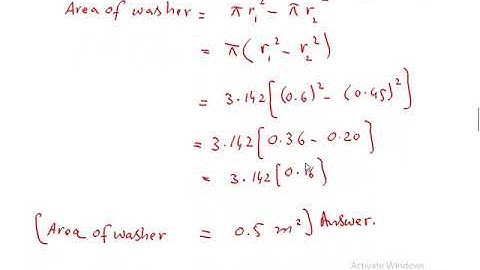 Area of washer = π r₁² − π r₂²
= π ( r₁² − r₂² )
= 3.142 [ (0.6)² − (0.45)² ]
= 3.142 [ 0.36 − 0.20 ]
= 3.142 [ 0.16 ]
[ Area of washer = 0.5 m² ] Answer.
Activate Windows